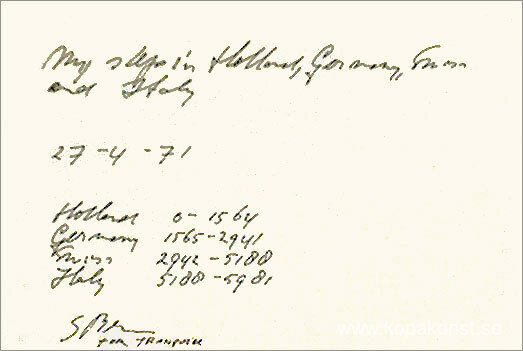 My steps in Holland, Germany, Swiss
and Italy
27-4-71
Holland 0-1564
Germany 1565-2941
Swiss 2942-5188
Italy 5188-5981
www.kopakonst.se